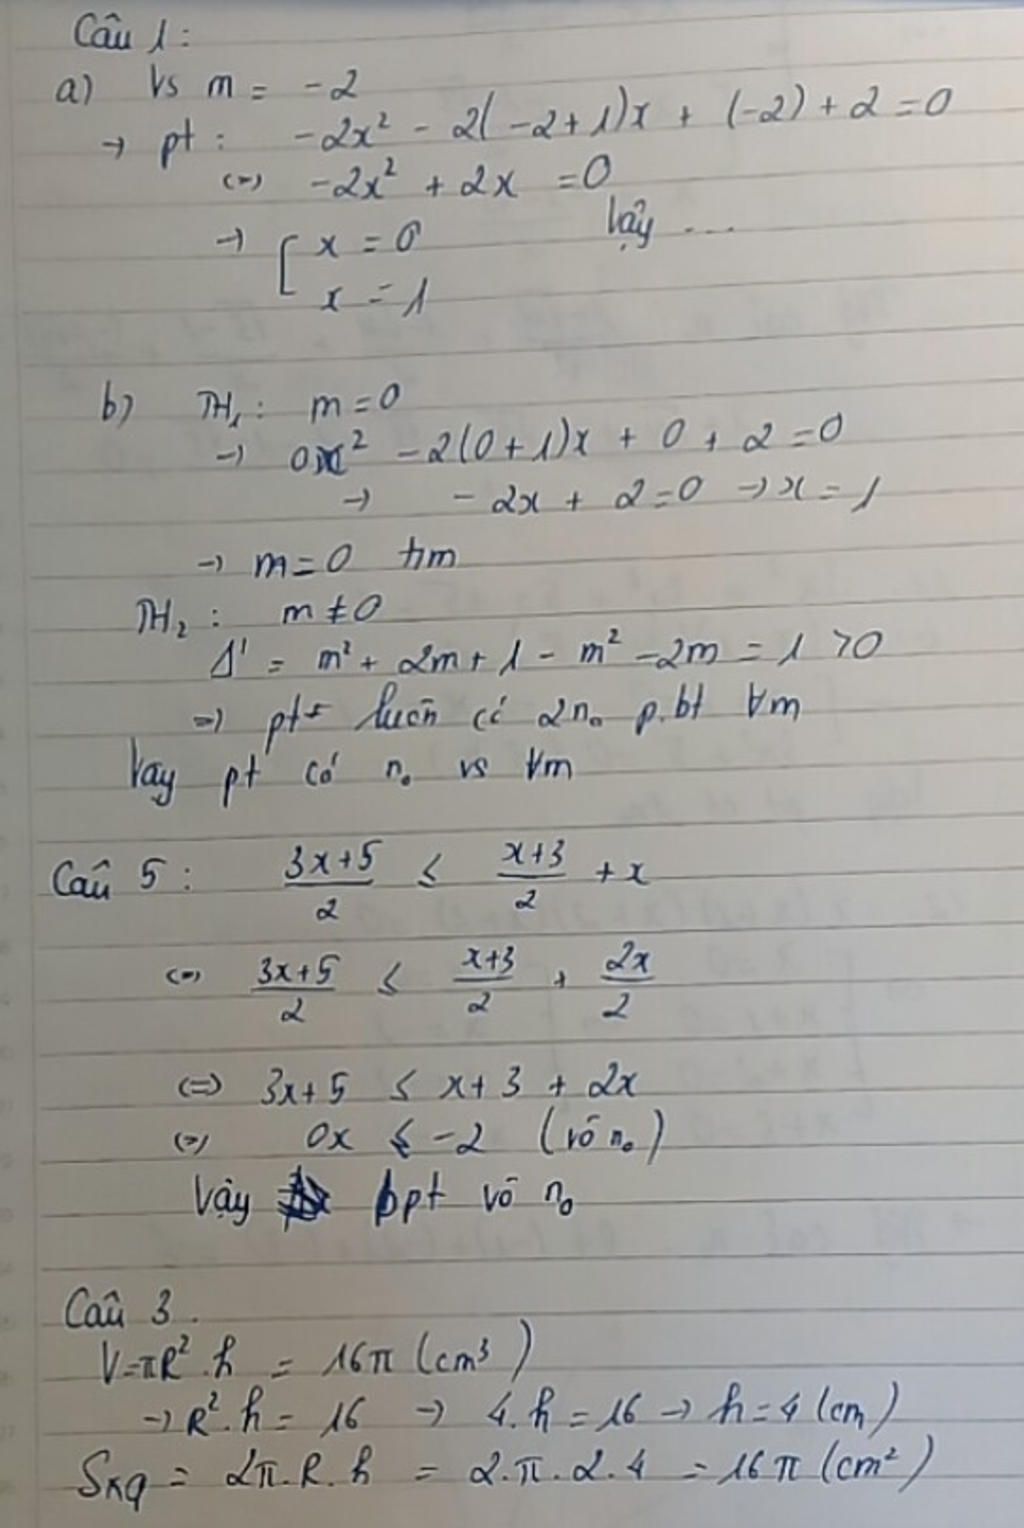 Câu 1:
a) Vs m = -2
→ pt: -2x² - 2(-2+1)x + (-2) + 2 = 0
(=) -2x² + 2x = 0
→ [ x = 0 Vậy ...
x = 1
b) TH₁: m = 0
→ 0x² - 2(0+1)x + 0 + 2 = 0
→ - 2x + 2 = 0 → x = 1
→ m = 0 t/m
TH₂: m ≠ 0
Δ' = m² + 2m + 1 - m² - 2m = 1 > 0
=) pt luôn có 2 n₀ p.bt ∀m
Vậy pt có n₀ vs ∀m
Câu 5: (3x+5)/2 ≤ (x+3)/2 + x
(=) (3x+5)/2 ≤ (x+3)/2 + 2x/2
(=) 3x+5 ≤ x+3 + 2x
(=) 0x ≤ -2 (vô n₀)
Vậy bpt vô n₀
Câu 3.
V=πR².h = 16π (cm³)
→ R².h = 16 → 4.h = 16 → h = 4 (cm)
Sxq = 2π.R.h = 2.π.2.4 = 16π (cm²)